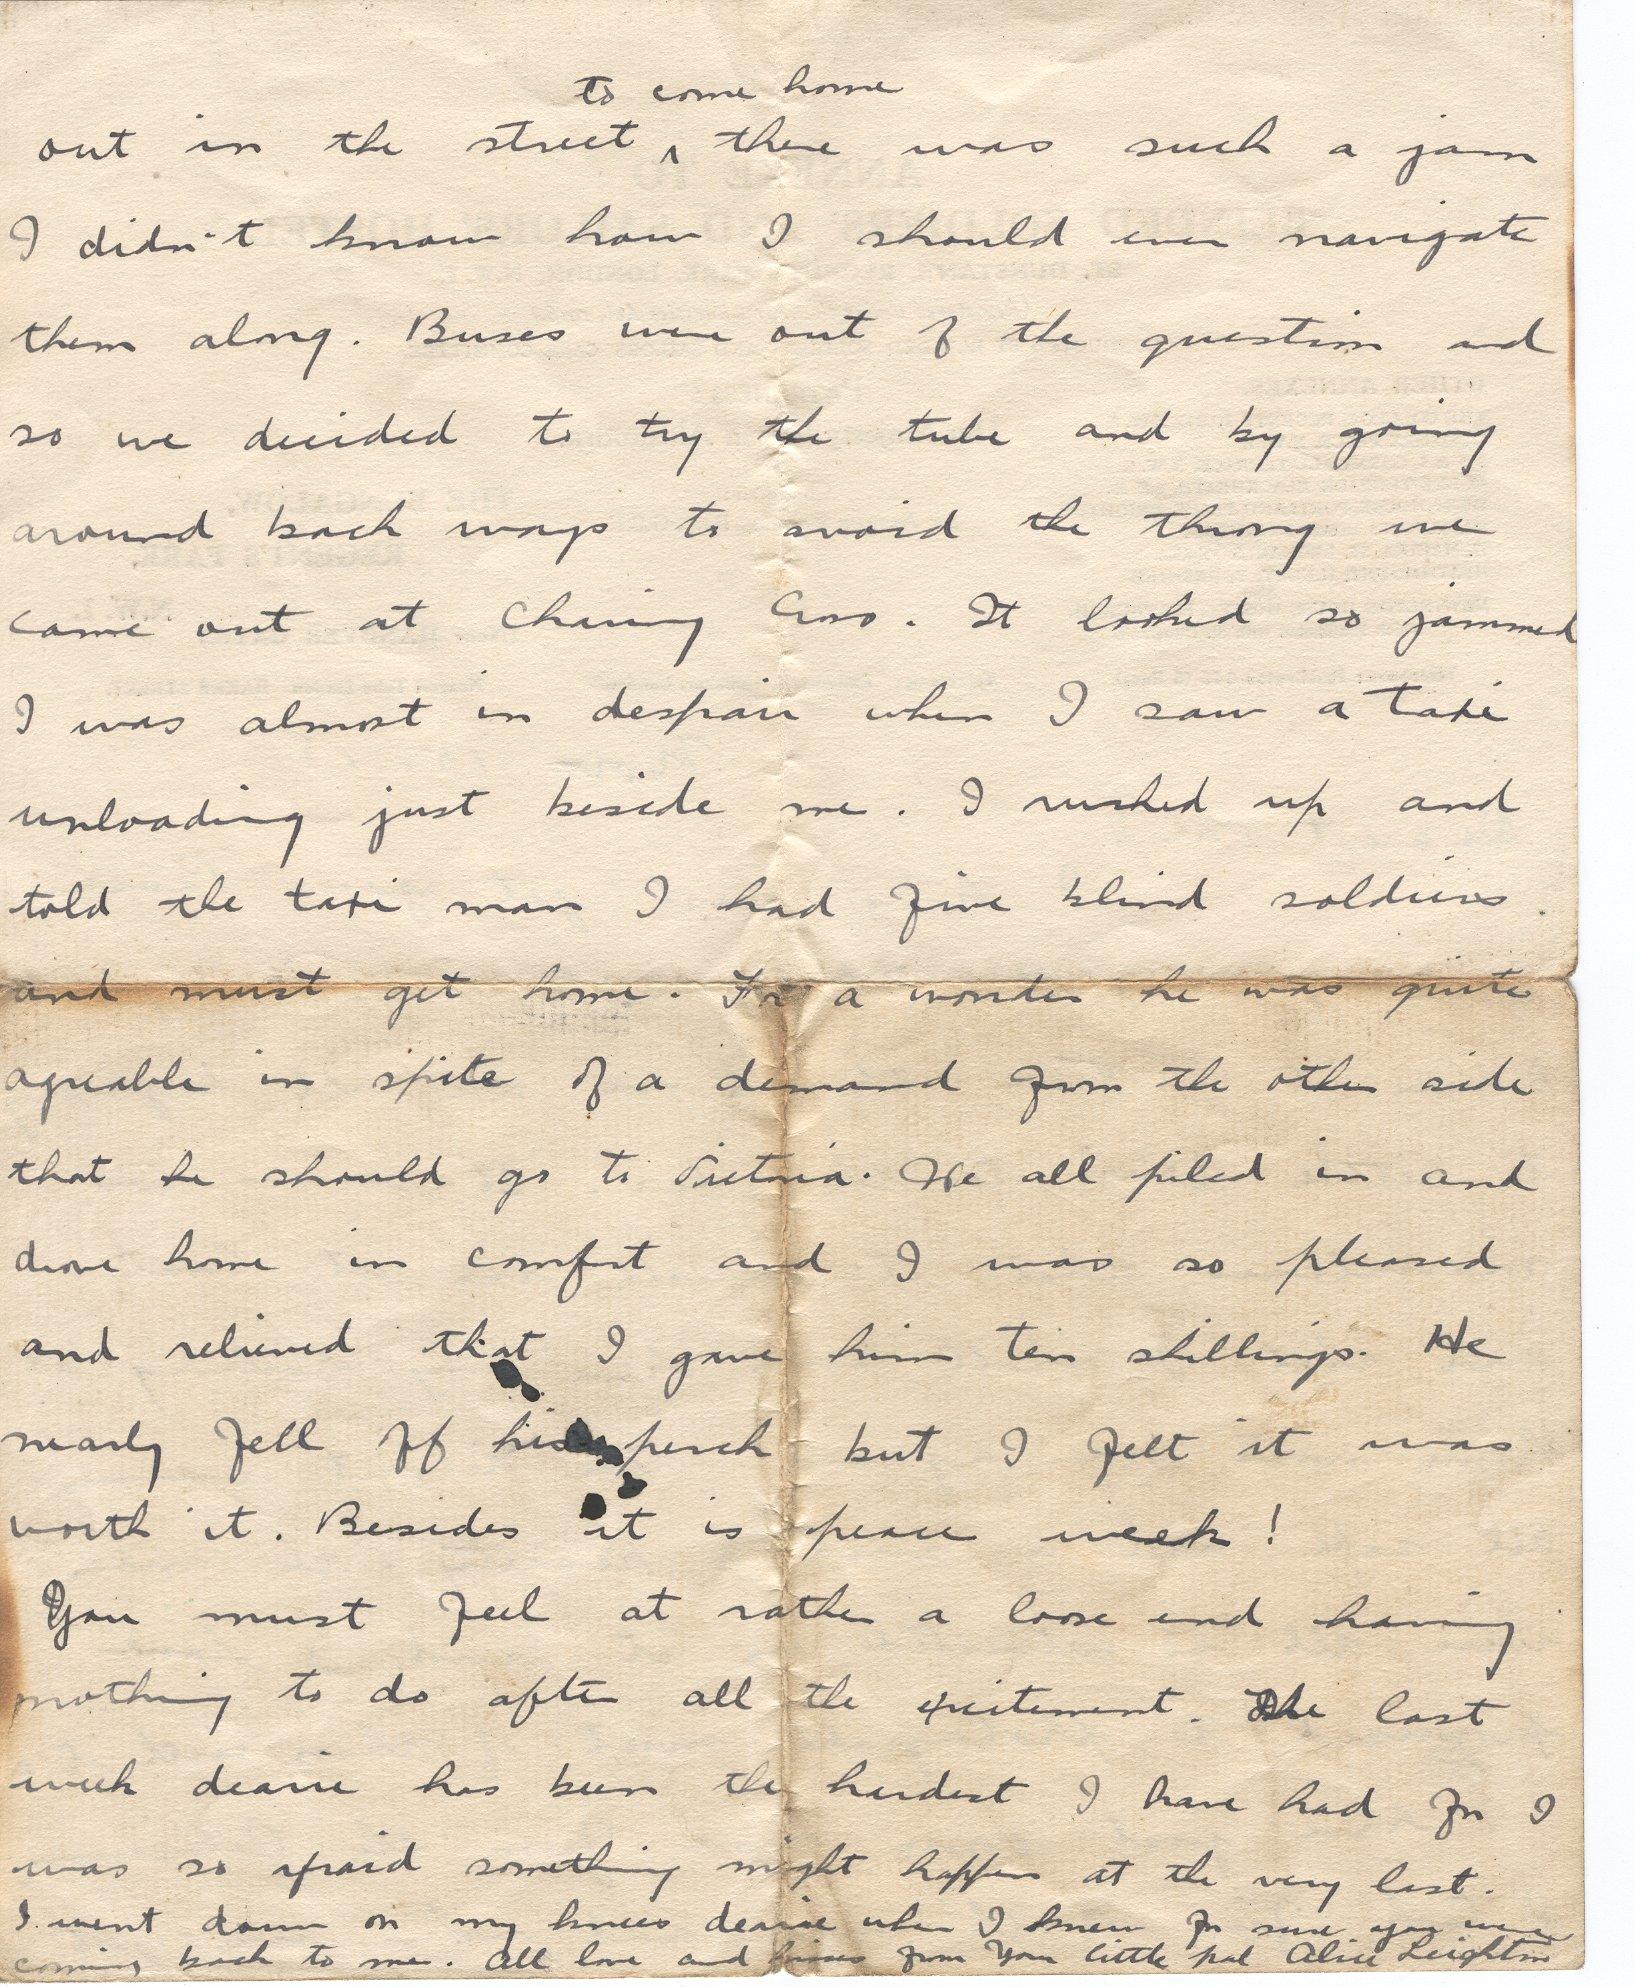 to come home
out in the street ^ there was such a jam
I didn't know how I should ever navigate
them along. Buses were out of the question and
so we decided to try the tube and by going
around back ways to avoid the throng we
came out at Charing Cross. It looked so jammed
I was almost in despair when I saw a taxi
unloading just beside me. I rushed up and
told the taxi man I had five blind soldiers
and must get home. For a wonder he was quite
agreable in spite of a demand from the other side
that he should go to Victoria. We all piled in and
drove home in comfort and I was so pleased
and relieved that I gave him ten shillings. He
nearly fell off his perch but I felt it was
worth it. Besides it is peace week!
You must feel at rather a loose end having
nothing to do after all the excitement. The last
week dearie has been the hardest I have had for I
was so afraid something might happen at the very last.
I went down on my knees dearie when I knew for sure you were
coming back to me. All love and kisses from your little pal Alice Leighton